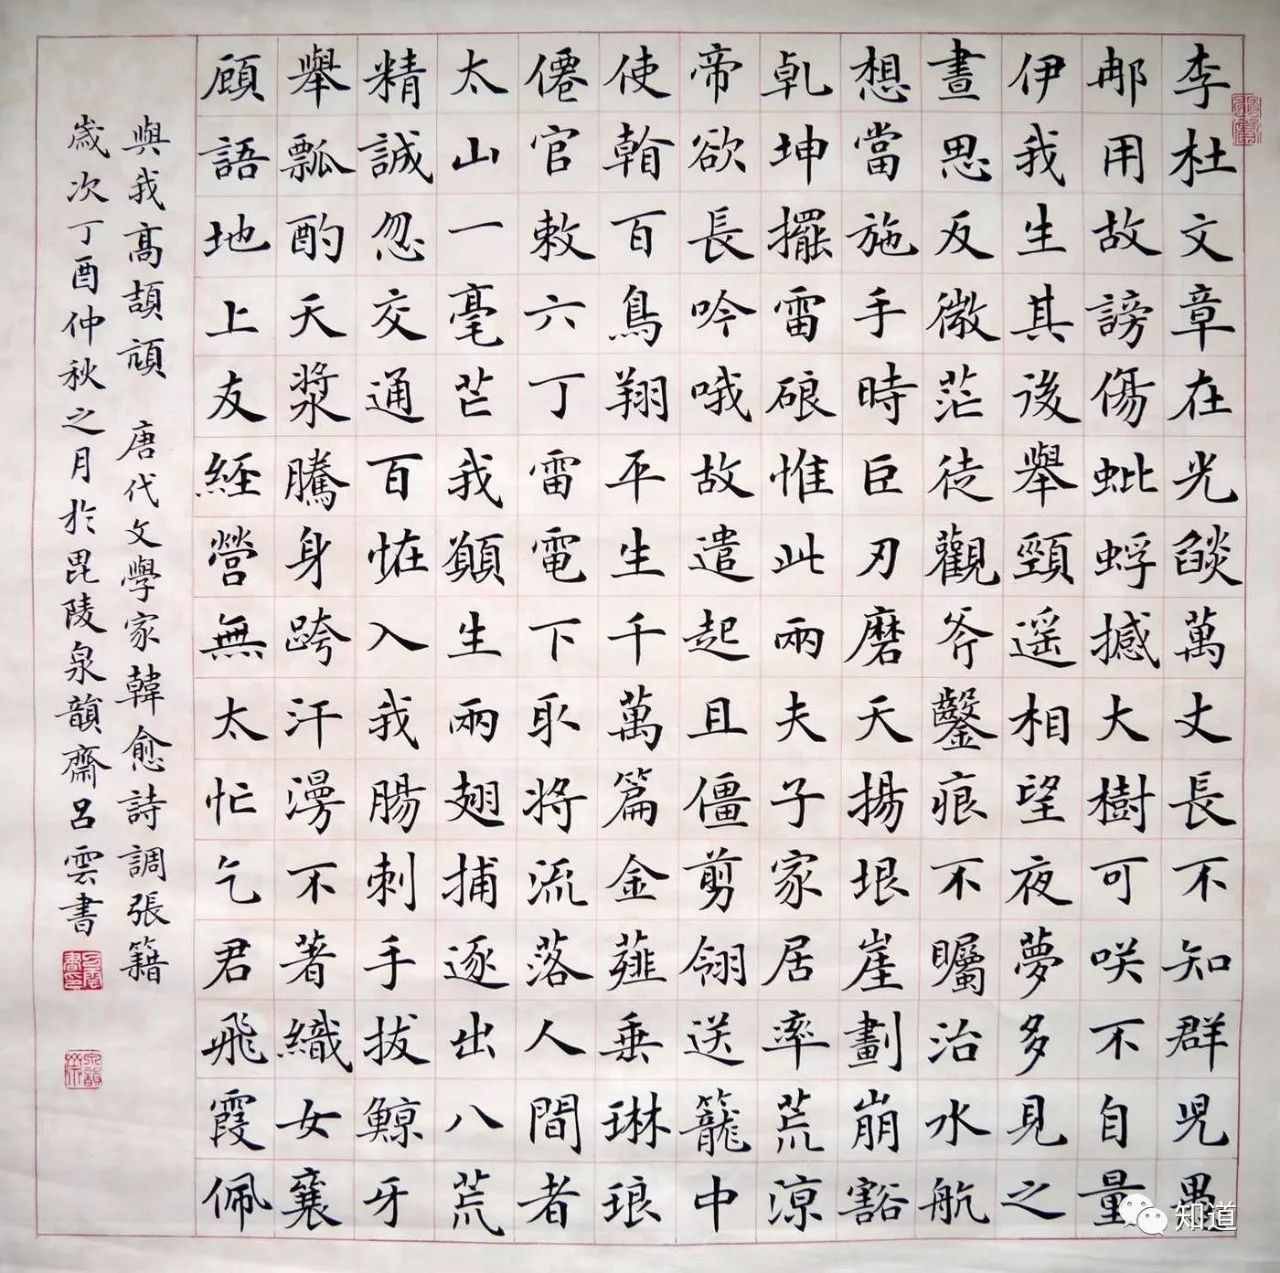 李杜文章在光燄萬丈長不知群兒愚
那用故謗傷蚍蜉撼大樹可咲不自量
伊我生其後舉頸遥相望夜夢多見之
晝思反微茫徒觀斧鑿痕不矚治水航
想當施手時巨刃磨天揚垠崖劃崩豁
乹坤擺雷硠惟此兩夫子家居率荒涼
帝欲長吟哦故遣起且僵剪翎送籠中
使看百鳥翔平生千萬篇金薤垂琳琅
僊官敕六丁雷電下取將流落人間者
太山一毫芒我願生兩翅捕逐出八荒
精誠忽交通百恠入我腸刺手拔鯨牙
舉瓢酌天漿騰身跨汗漫不著織女襄
顧語地上友經營無太忙乞君飛霞佩
與我高頡頏 唐代文學家韓愈詩調張籍
歲次丁酉仲秋之月於毘陵泉韻齋呂雲書
知道